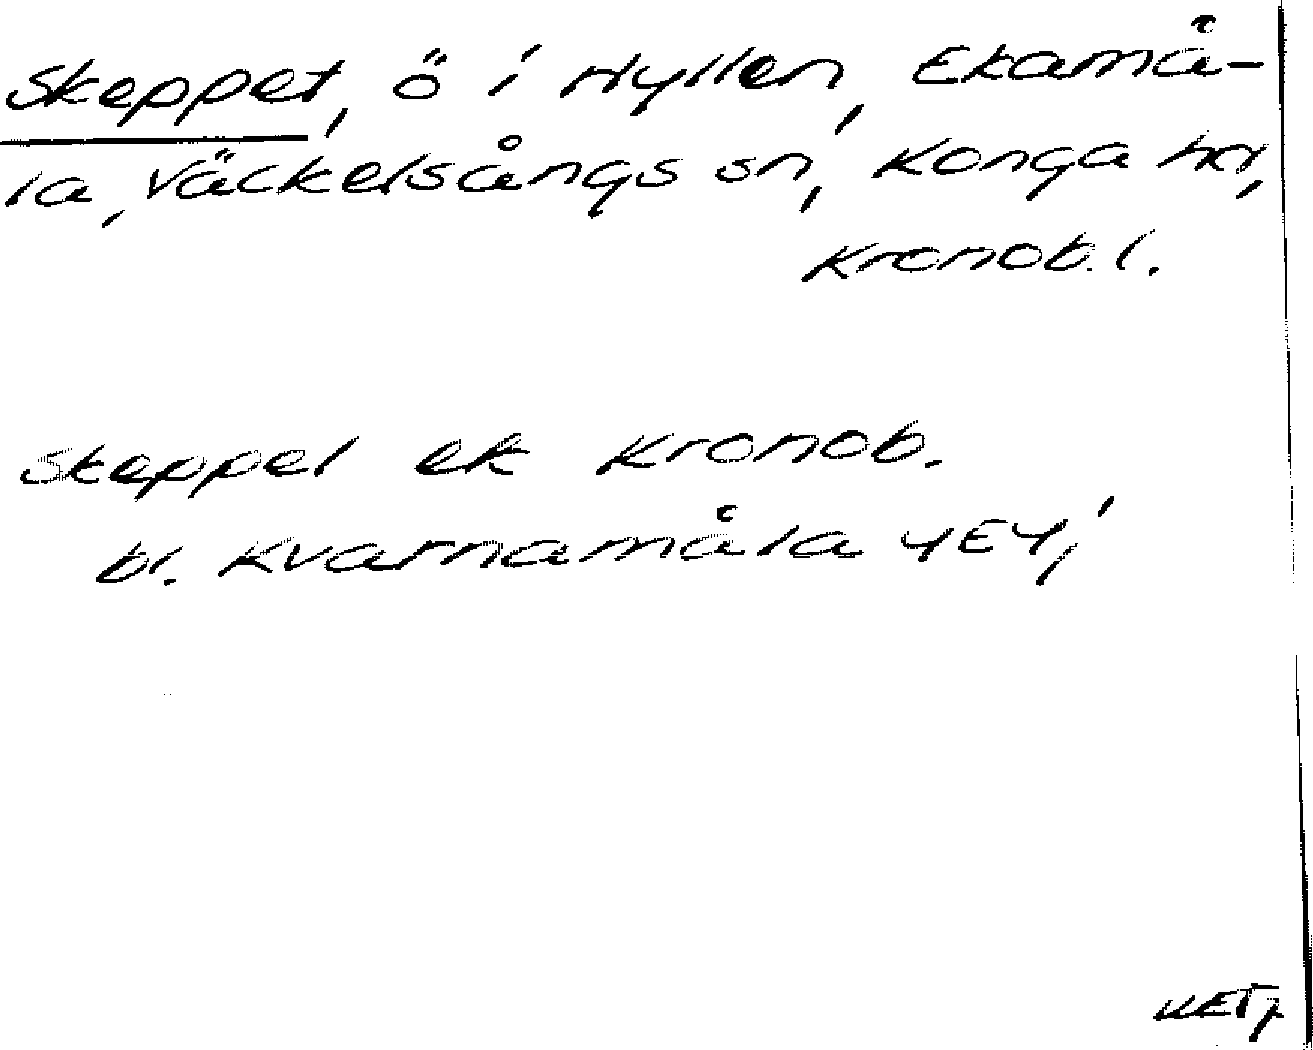 Skeppet, ö i Hyllen, Ekamå-
la, Väckelsångs sn, Konga hd,
Kronob. l.
Skeppet ek Kronob.
bl. Kvarnamåla 4E4,